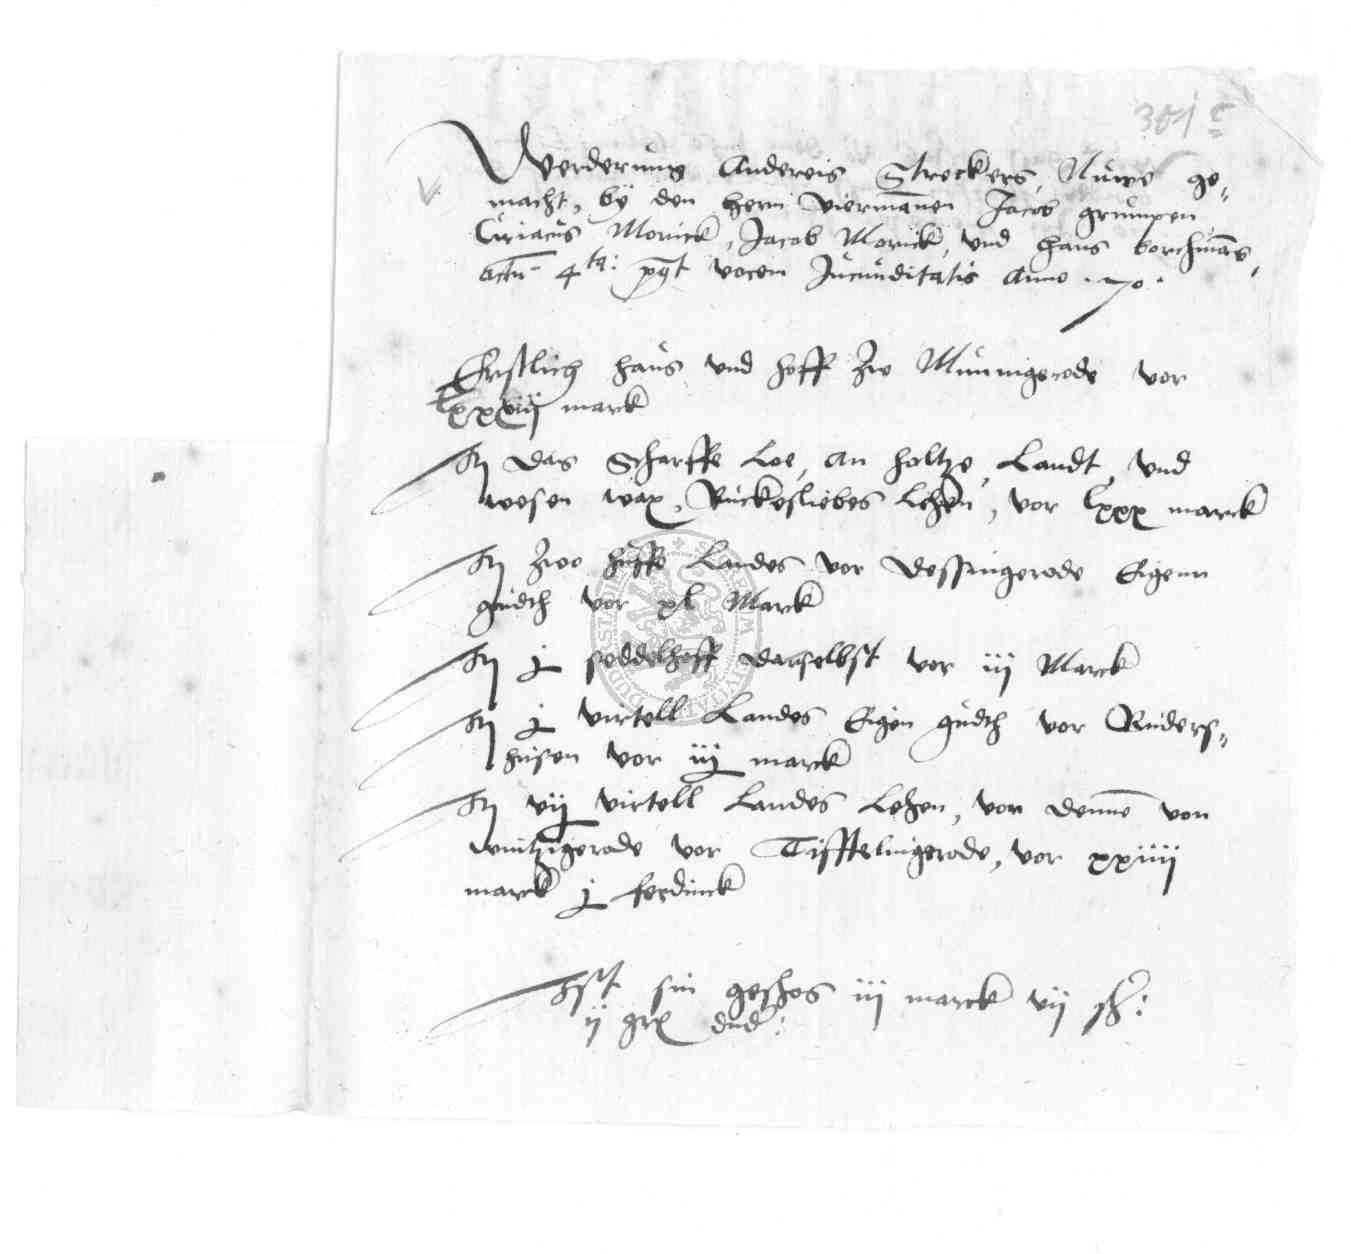 301 c
Werderung Andereis Streckers, Nuwe ge„
macht, by den hern viermannen Jacob grumpen
Ciriacus Monick, Jacob Monick, vnd hans borchmans,
actu 4ta: post vocem Jucunditatis Anno .70.
Erstlich haus vnd hoff zw Munnigerode vor
lxxviij marck
It das Scharffe Loe, an holtze, Landt, vnd
wesen wax, Ruckesliebes Lehen, vor lxxx marck
It zwo huffe Landes vor Dessingerode Eigenn
gudth vor xl Marck
It j seddelhoff darselbst vor iij Marck
It j virtell Landes Eigen gudth vor Ruders„
husen vor iij marck
It vij virtell Landes Lehen, von denne von
wintzigerode vor Tifftelingerode, vor xxiiij
marck j ferdinck
Ist sin geschos iij marck vij sh:
ij gr dud:
SIGILLUM CIVITATIS DUDERSTADT